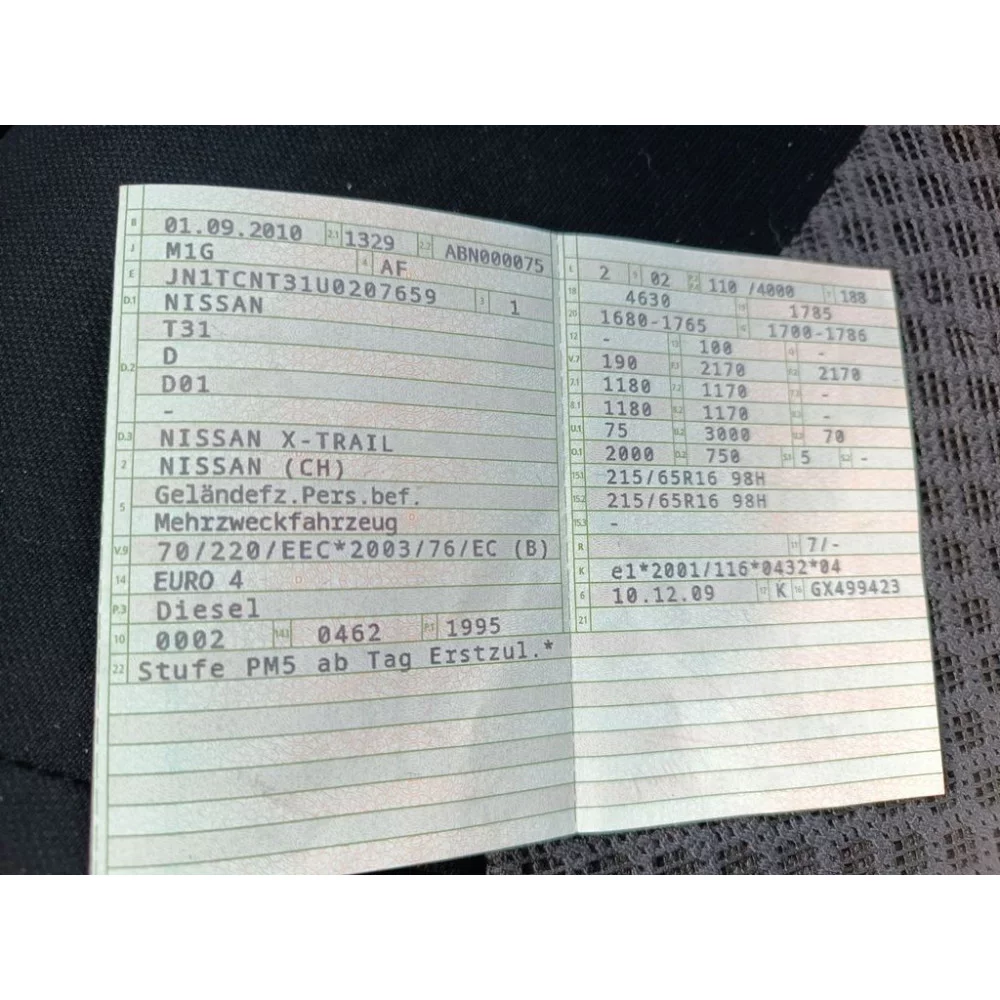 B 01.09.2010 2.1 1329 2.2 ABN000075
J M1G 4 AF
E JN1TCNT31U0207659 3 1
D.1 NISSAN
D.2 T31
D
D01
-
D.3 NISSAN X-TRAIL
2 NISSAN (CH)
5 Geländefz.Pers.bef.
Mehrzweckfahrzeug
V.9 70/220/EEC*2003/76/EC (B)
14 EURO 4
P.3 Diesel
10 0002 14.1 0462 P.1 1995
22 Stufe PM5 ab Tag Erstzul.*
L 2 9 02 110 /4000 T 188
18 4630 19 1785
20 1680-1765 G 1700-1786
12 - 13 100 Q -
V.7 190 F.1 2170 F.2 2170
7.1 1180 7.2 1170 7.3 -
8.1 1180 8.2 1170 8.3 -
U.1 75 U.2 3000 U.3 70
O.1 2000 O.2 750 S.1 5 S.2 -
15.1 215/65R16 98H
15.2 215/65R16 98H
15.3 -
R 11 7/-
K e1*2001/116*0432*04
6 10.12.09 17 K 16 GX499423
21